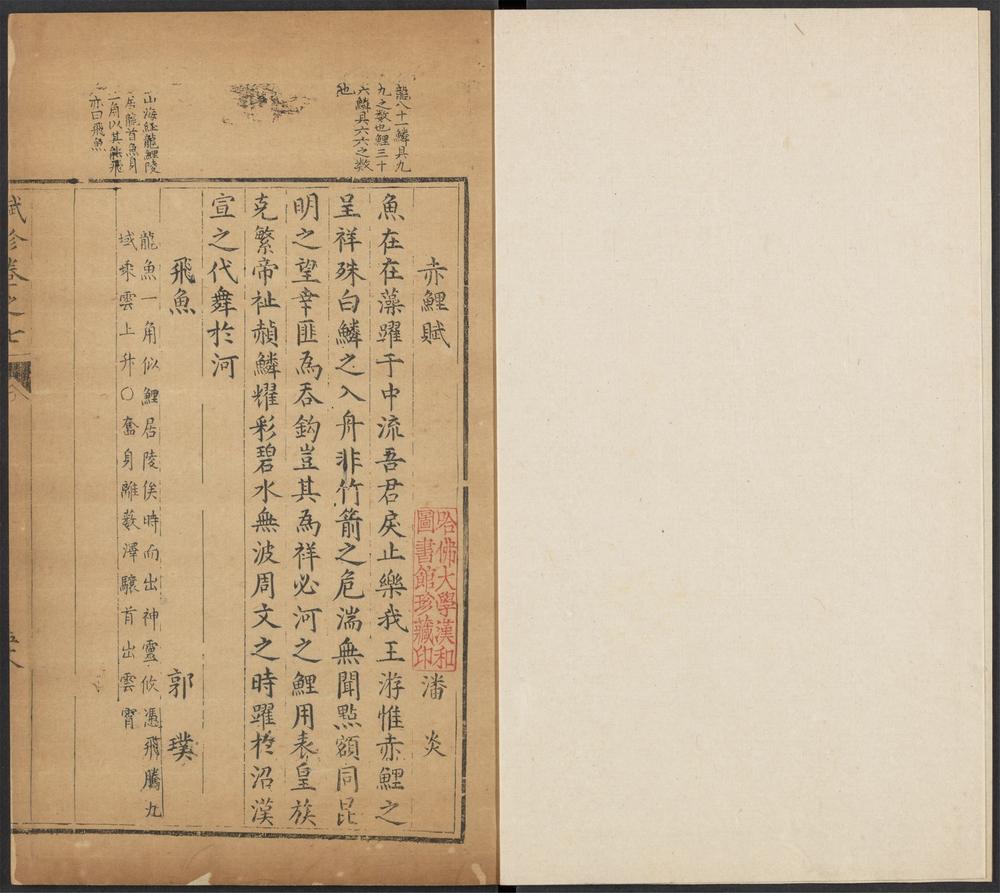 龍八十一鱗具九
九之數也鯉三十
六鱗具六六之數
也
山海經龍鯉陵
居能首魚身
一角以其能飛
亦曰飛魚
赤鯉賦 潘炎
哈佛大學漢和
圖書館珍藏印
魚在在藻躍于中流吾君戾止樂我王游惟赤鯉之
呈祥殊白鱗之入舟非竹箭之危湍無聞㸃額同昆
明之望幸匪為吞鈎豈其為祥必河之鯉用表皇族
克繁帝祉赬鱗耀彩碧水無波周文之時躍於沼漢
宣之代舞於河
飛魚 郭璞
龍魚一角似鯉居陵俟時而出神靈攸憑飛騰九
域乘雲上升○奮身離藪澤驤首出雲霄
賦珍卷之七